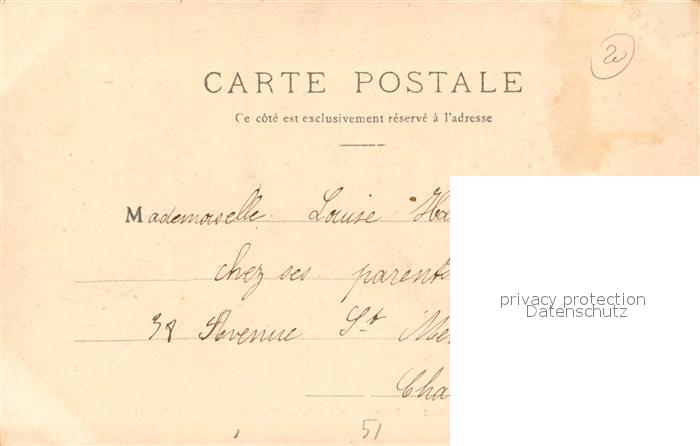 20
CARTE POSTALE
Ce côté est exclusivement réservé à l'adresse
Mademoiselle Louise Ha
chez ses parent
privacy protection
Datenschutz
38 Avenue St Me
Cha
51